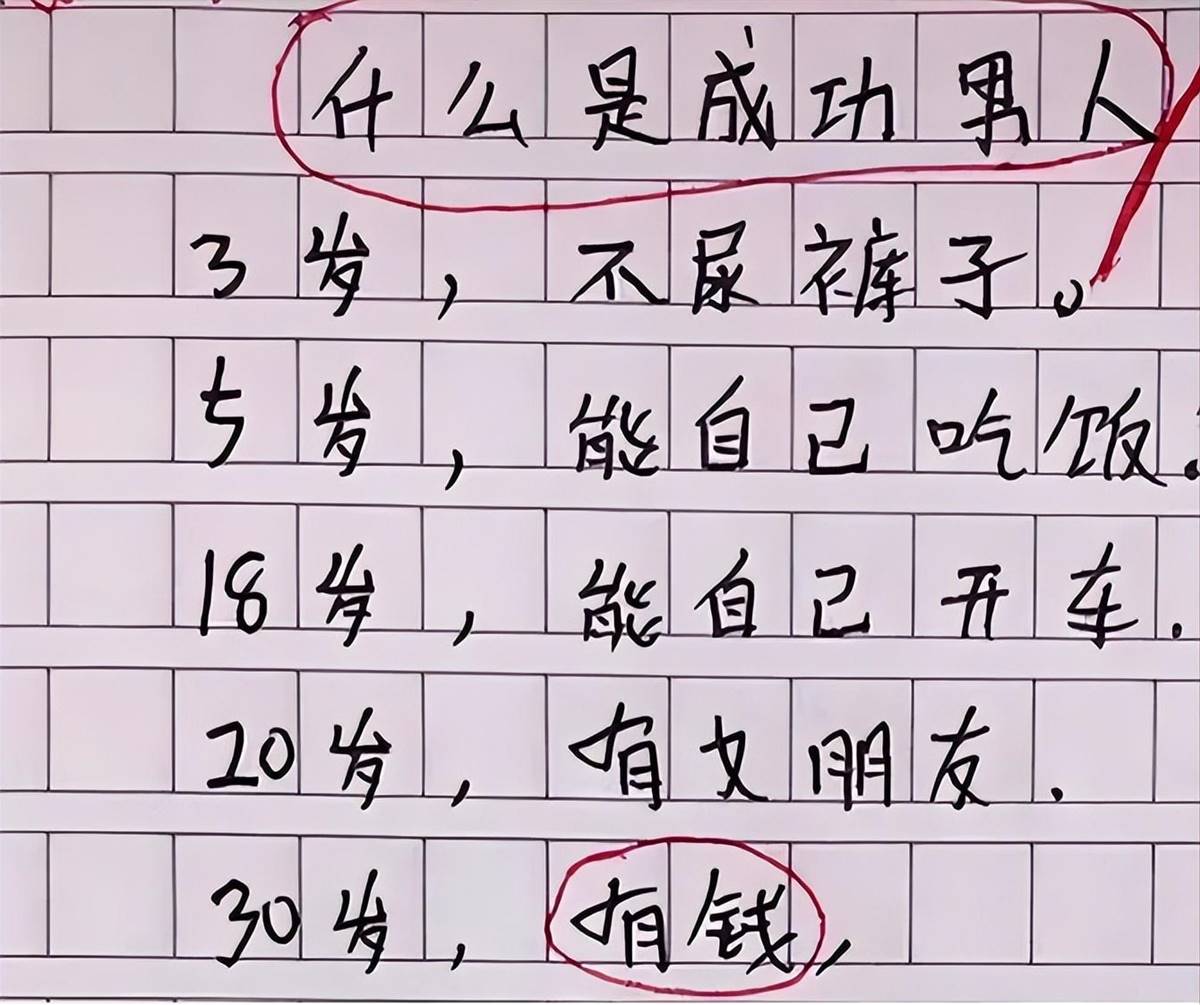 什么是成功男人
3岁，不尿裤子。
5岁，能自己吃饭.
18岁，能自己开车.
20岁，有女朋友.
30岁，有钱，